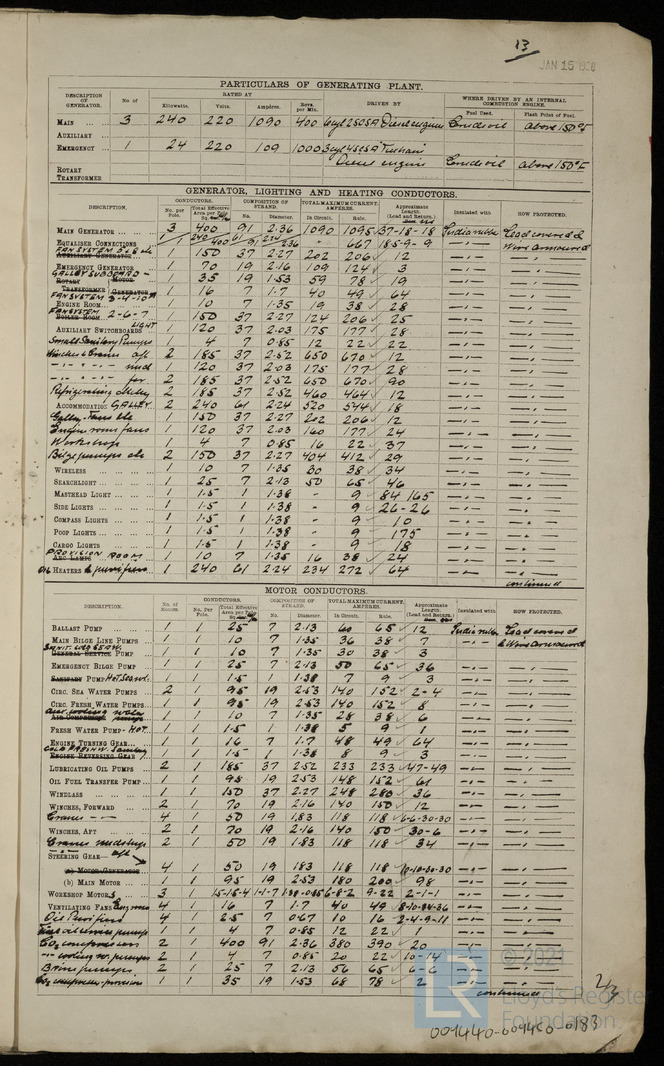 13
JAN 15
PARTICULARS OF GENERATING PLANT.
DESCRIPTION OF GENERATOR. No of RATED AT DRIVEN BY WHERE DRIVEN BY AN INTERNAL COMBUSTION ENGINE.
Kilowatts. Volts. Ampères. Revs. per Min. Fuel Used. Flash Point of Fuel.
MAIN 3 240 220 1090 400 6cyl 250SA Diesel engine Crude oil above 150°F
AUXILIARY
EMERGENCY 1 24 220 109 1000 3cyl Diesel engine Crude oil above 150°F
ROTARY TRANSFORMER
GENERATOR, LIGHTING AND HEATING CONDUCTORS.
DESCRIPTION. CONDUCTORS. COMPOSITION OF STRAND. TOTAL MAXIMUM CURRENT. AMPERES. Approximate Length. (Lead and Return.) Insulated with HOW PROTECTED.
No. per Pole. Total Effective Area per Pole No. Diameter. In Circuit. Rule.
MAIN GENERATOR 3 400 91 2.36 1090 1095 37-18-18 India rubber Lead covered &
EQUALISER CONNECTIONS 1 400 91 2.36 - 667 185-9-9 Wire armoured
FAN SYSTEM AUXILIARY GENERATOR 1 150 37 2.27 202 206 12
EMERGENCY GENERATOR 1 70 19 2.16 109 124 3
GALLEY ROTARY MOTOR 1 35 19 1.53 59 78 19
TRANSFORMER GENERATOR 1 16 7 1.7 40 49 64
FAN SYSTEM 3-4-10A
ENGINE ROOM 1 10 7 1.35 19 38 28
FAN SYSTEM BOILER ROOM 2-6-7 1 150 37 2.27 124 206 25
AUXILIARY SWITCHBOARDS LIGHT 1 120 37 2.03 175 177 28
Small Sanitary Pumps 1 4 7 0.85 12 22 22
Winches & Cranes aft 2 185 37 2.52 650 670 12
mid 1 120 37 2.03 175 177 28
for 2 185 37 2.52 650 670 90
Refrigerating 2 185 37 2.52 460 464 12
ACCOMMODATION GALLEY 2 240 61 2.24 520 544 18
Galley, 1 150 37 2.27 202 206 12
Engine room fans 1 120 37 2.03 160 177 24
Workshop 1 4 7 0.85 16 22 37
Bilge pumps etc 2 150 37 2.27 404 412 29
WIRELESS 1 10 7 1.35 30 38 34
SEARCHLIGHT 1 25 7 2.13 50 65 46
MASTHEAD LIGHT 1 1.5 1 1.38 - 9 84 165
SIDE LIGHTS 1 1.5 1 1.38 - 9 26-26
COMPASS LIGHTS 1 1.5 1 1.38 - 9 10
POOP LIGHTS 1 1.5 1 1.38 - 9 175
CARGO LIGHTS 1 1.5 1 1.38 - 9 18
PROVISION ROOM ARC LAMPS 1 10 7 1.35 16 38 24
OIL HEATERS & purifiers 1 240 61 2.24 234 272 64
continued
MOTOR CONDUCTORS.
DESCRIPTION. No. of Motors. CONDUCTORS. COMPOSITION OF STRAND. TOTAL MAXIMUM CURRENT. AMPERES. Approximate Length. (Lead and Return.) Insulated with HOW PROTECTED.
No. Per Pole. Total Effective Area per Pole No. Diameter. In Circuit. Rule.
BALLAST PUMP 1 1 25 7 2.13 60 65 12 India rubber Lead covered
MAIN BILGE LINE PUMPS 1 1 10 7 1.35 36 38 7 & Wire armoured
GENERAL SERVICE PUMP 1 1 10 7 1.35 30 38 3
EMERGENCY BILGE PUMP 1 1 25 7 2.13 50 65 36
SANITARY PUMP HOT 1 1 1.5 1 1.38 7 9 3
CIRC. SEA WATER PUMPS 2 1 95 19 2.53 140 152 2-4
CIRC. FRESH WATER PUMPS 1 1 95 19 2.53 140 152 8
AIR COMPRESSOR 1 1 10 7 1.35 28 38 6
FRESH WATER PUMP - HOT. 1 1 1.5 1 1.38 5 9 1
ENGINE TURNING GEAR 1 1 16 7 1.7 48 49 64
COLD FRESH W. Sanitary
ENGINE REVERSING GEAR 1 1 1.5 1 1.38 8 9 3
LUBRICATING OIL PUMPS 2 1 185 37 2.52 233 233 47-49
OIL FUEL TRANSFER PUMP 1 1 95 19 2.53 148 152 61
WINDLASS 1 1 150 37 2.27 248 280 36
WINCHES, FORWARD 2 1 70 19 2.16 140 150 12
Cranes 4 1 50 19 1.83 118 118 6-6-30-30
WINCHES, AFT 2 1 70 19 2.16 140 150 30-6
Cranes midships 2 1 50 19 1.83 118 118 34
aft
STEERING GEAR—
(a) MOTOR GENERATOR 4 1 50 19 183 118 118 10-10-30-30
(b) MAIN MOTOR 1 1 95 19 2.53 180 200 98
WORKSHOP MOTORS 3 1 1-1-7 6-8-2 9-22 2-1-1
VENTILATING FANS Eng. room 4 1 16 7 1.7 40 49 8-10-34-36
Oil Purifiers 4 1 2.5 7 0.67 10 16 2-4-9-11
Fuel oil service pumps 1 1 4 7 0.85 12 22 1
Co₂ compressors 2 1 400 91 2.36 380 390 20
cooling w. pumps 2 1 4 7 0.85 20 22 10-14
Brine pumps 2 1 25 7 2.13 56 65 6-6
Co₂ compressor provision 1 1 35 19 1.53 68 78 2
continued
2/3
© 2021
LR
Lloyd's Register
Foundation
009440-009450-0183